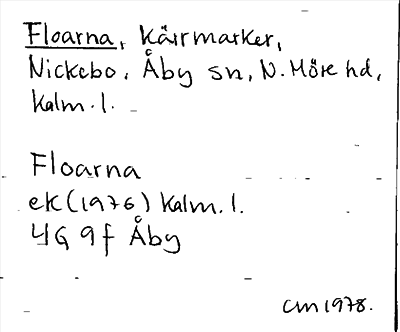 Floarna, Kärrmarker,
Nickebo, Åby sn, N. Möre hd,
Kalm. l.
Floarna
ek (1976) Kalm. l.
4G 9f Åby
CM 1978.